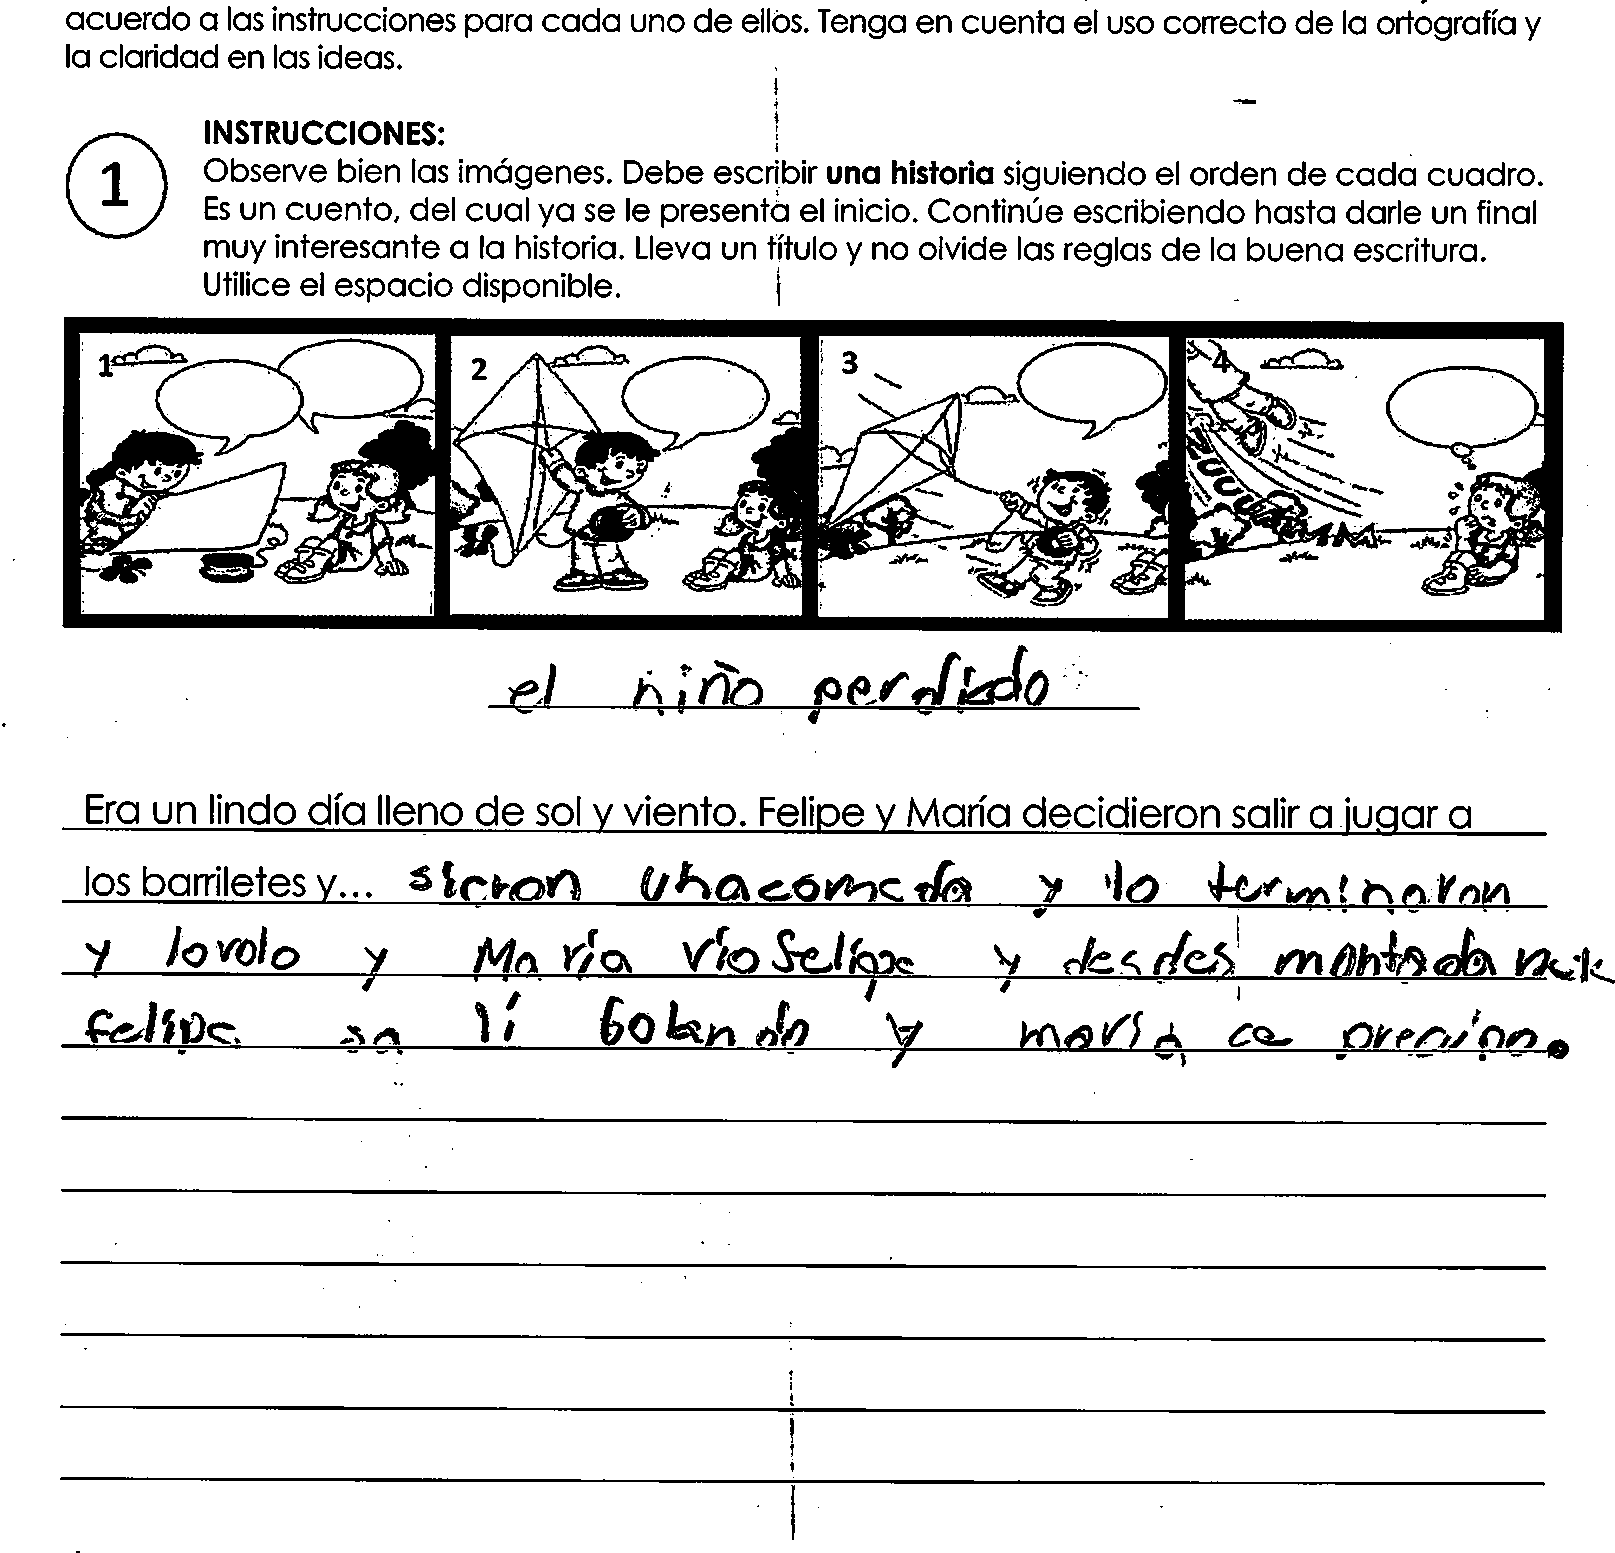 acuerdo a las instrucciones para cada uno de ellos. Tenga en cuenta el uso correcto de la ortografía y
la claridad en las ideas.
1
INSTRUCCIONES:
Observe bien las imágenes. Debe escribir una historia siguiendo el orden de cada cuadro.
Es un cuento, del cual ya se le presenta el inicio. Continúe escribiendo hasta darle un final
muy interesante a la historia. Lleva un título y no olvide las reglas de la buena escritura.
Utilice el espacio disponible.
1 2 3 4
el niño perdido
Era un lindo día lleno de sol y viento. Felipe y María decidieron salir a jugar a
los barriletes y... sieron unacometa y lo terminaron
y lovolo y María vio Felipe y
felipe sa lí bolando y maría ce